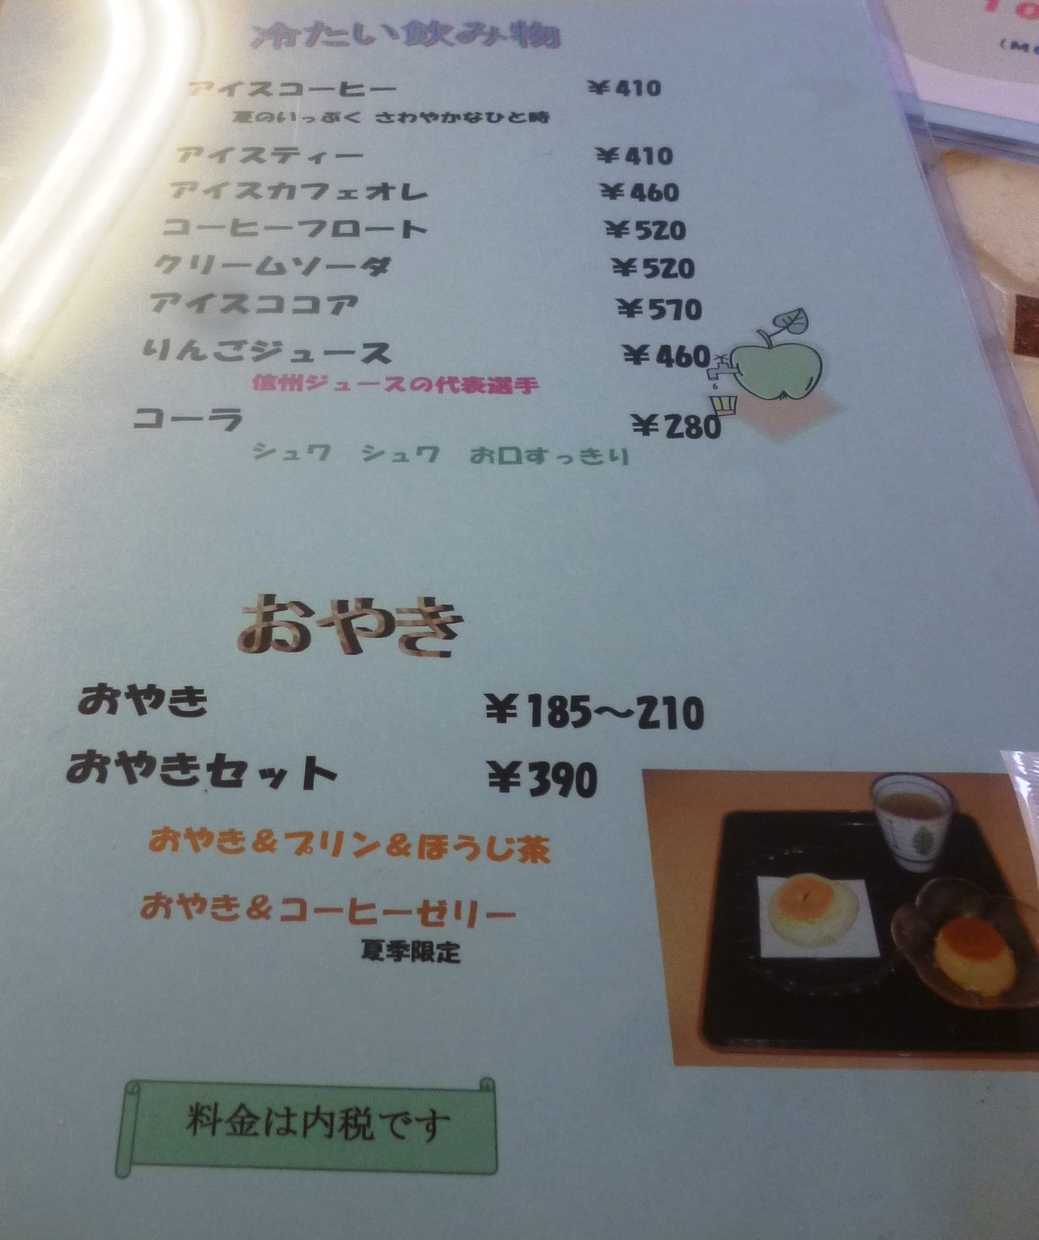 冷たい飲み物
アイスコーヒー ¥410
夏のいっぷく さわやかなひと時
アイスティー ¥410
アイスカフェオレ ¥460
コーヒーフロート ¥520
クリームソーダ ¥520
アイスココア ¥570
りんごジュース ¥460
信州ジュースの代表選手
コーラ ¥280
シュワ シュワ お口すっきり
おやき
おやき ¥185〜210
おやきセット ¥390
おやき&プリン&ほうじ茶
おやき&コーヒーゼリー
夏季限定
料金は内税です